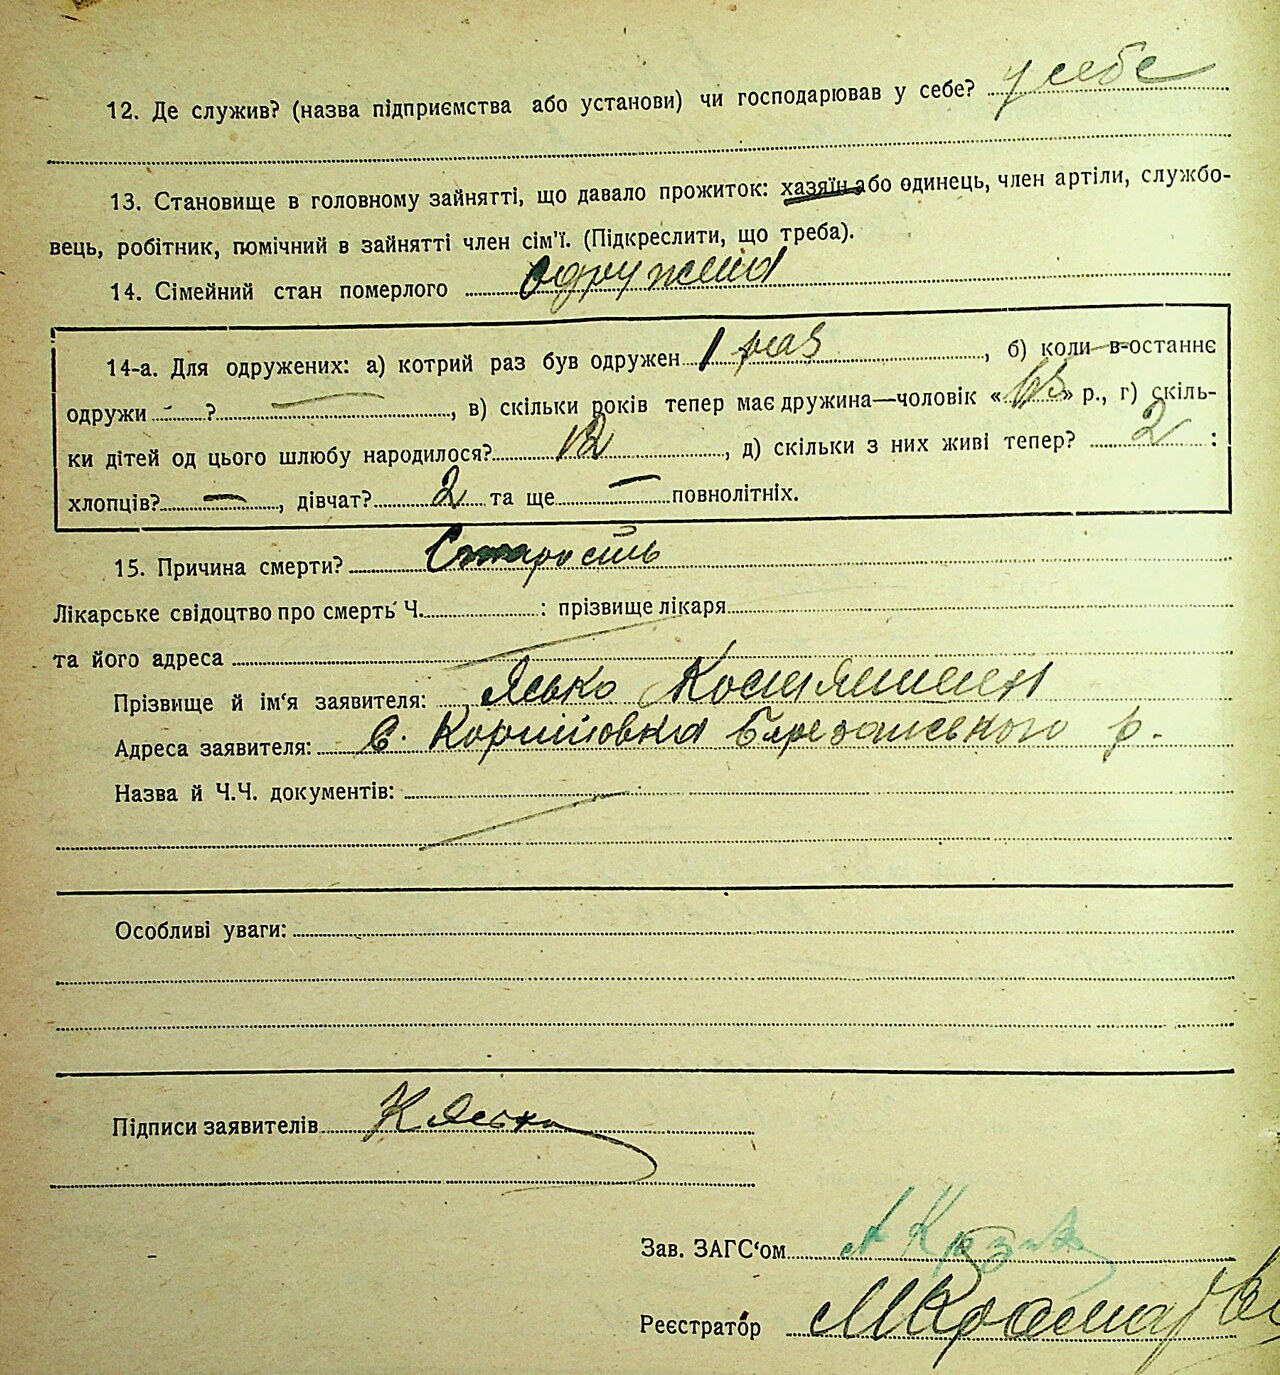 12. Де служив? (назва підприємства або установи) чи господарював у себе? у себе
13. Становище в головному зайнятті, що давало прожиток: хазяїн або одинець, член артіли, службо-
вець, робітник, помічний в зайнятті член сім'ї. (Підкреслити, що треба).
14. Сімейний стан померлого одружена
14-а. Для одружених: а) котрий раз був одружен 1 раз, б) коли в-останнє
одружи - ? —, в) скільки років тепер має дружина—чоловік «63» р., г) скіль-
ки дітей од цього шлюбу народилося? 12, д) скільки з них живі тепер? 2 :
хлопців? —, дівчат? 2 та ще — повнолітніх.
15. Причина смерти? Старость
Лікарське свідоцтво про смерть Ч. : прізвище лікаря
та його адреса
Прізвище й ім'я заявителя: Ясько
Адреса заявителя: с. Березанського р.
Назва й Ч.Ч. документів:
Особливі уваги:
Підписи заявителів К Ясько
Зав. ЗАГС'ом
Реєстратор